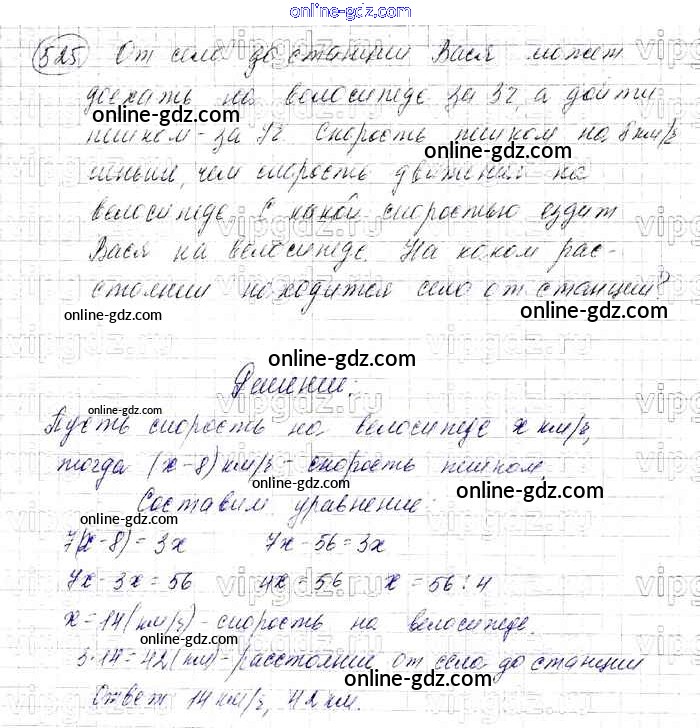 online-gdz.com
525 От села до станции Вася может
доехать на велосипеде за 3ч, а дойти
пешком - за 7ч Скорость пешком на 8 км/ч
online-gdz.com
меньше, чем скорость движения на
online-gdz.com
велосипеде. С какой скоростью ездит
Вася на велосипеде. На каком рас-
online-gdz.com
стоянии находится село от станции?
online-gdz.com
online-gdz.com
Решение:
online-gdz.com
Пусть скорость на велосипеде x км/ч,
тогда (x-8) км/ч - скорость пешком.
online-gdz.com
Составим уравнение:
online-gdz.com
7(x-8)=3x 7x-56=3x
7x-3x=56 4x=56 x=56:4
x=14(км/ч)-скорость на велосипеде.
online-gdz.com
3·14=42(км)-расстояние от села до станции
online-gdz.com
Ответ 14км/ч, 42км.
online-gdz.com